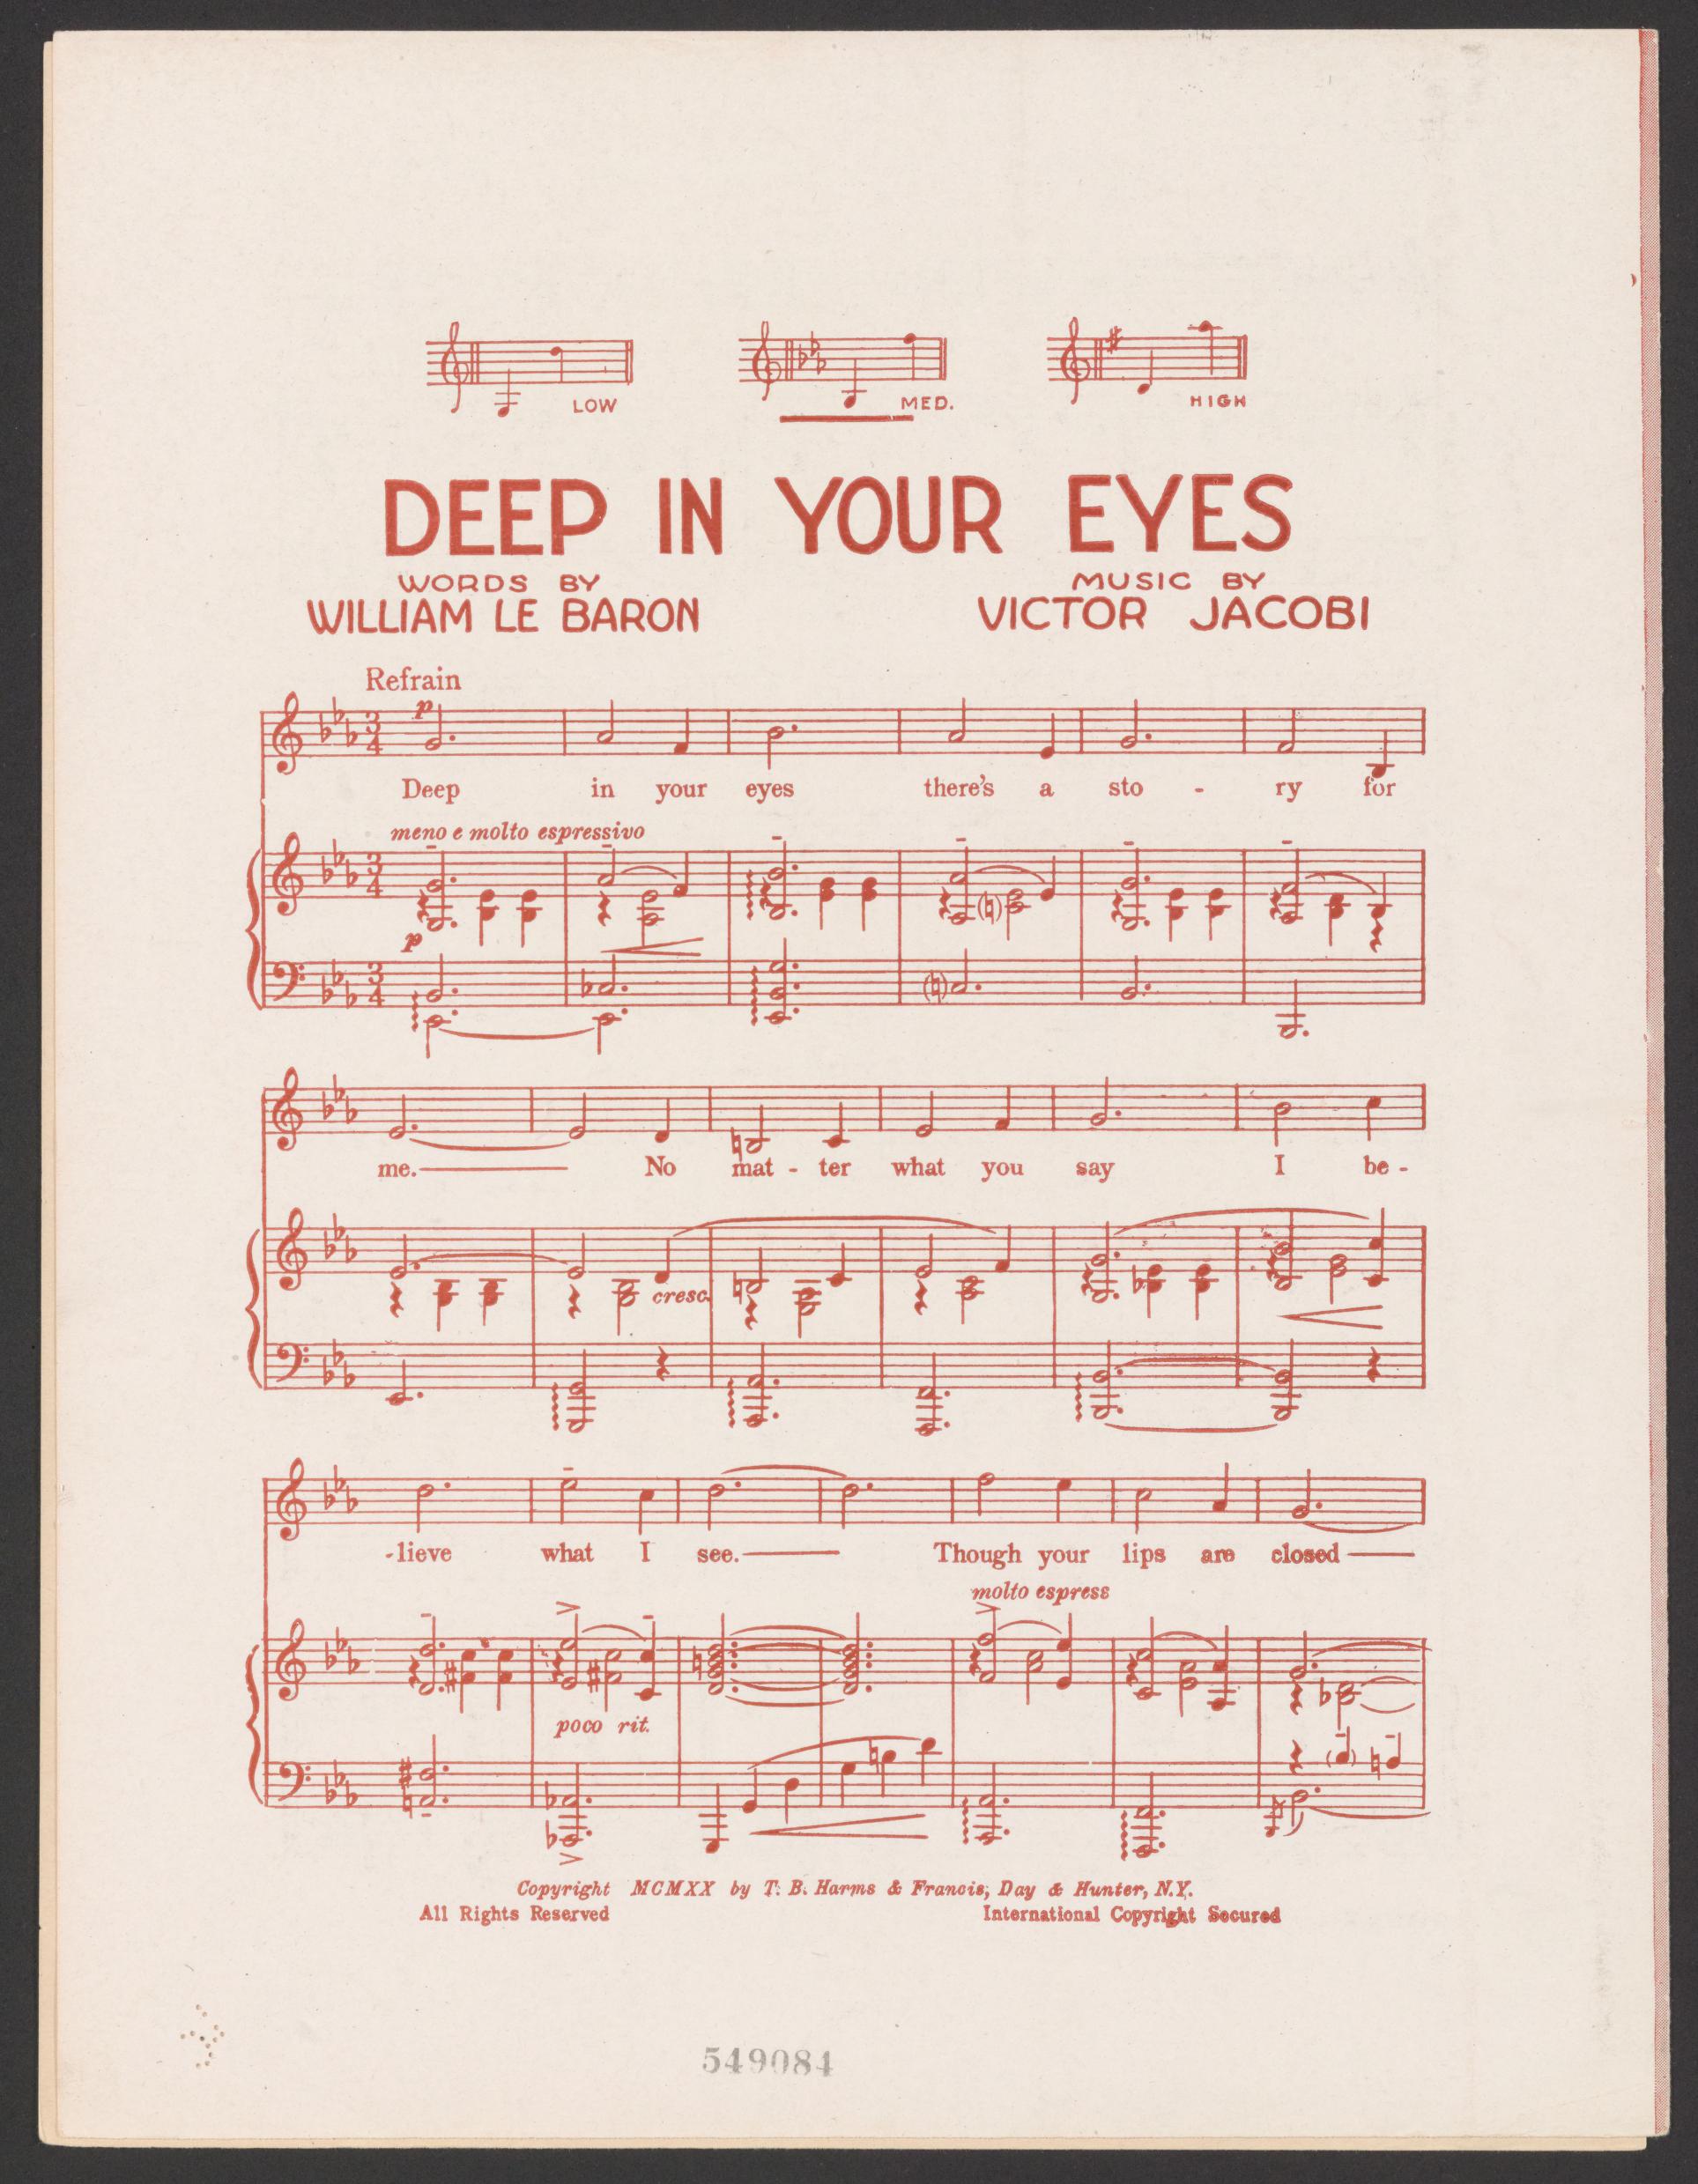 LOW MED. HIGH
DEEP IN YOUR EYES
WORDS BY MUSIC BY
WILLIAM LE BARON VICTOR JACOBI
Refrain
p
Deep in your eyes there's a sto - ry for
meno e molto espressivo
p
me. No mat - ter what you say I be -
cresc.
-lieve what I see. Though your lips are closed
molto espress
poco rit.
Copyright MCMXX by T. B. Harms & Francis, Day & Hunter, N.Y.
All Rights Reserved International Copyright Secured
549084